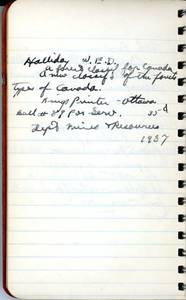 Halliday W. E. D.
a forest classif. for Canada
a new classif. of the forest
types of Canada.
Kings Printer - Ottawa
Bull # 89 For. Serv. 35
Dept Mines & Resources
1937